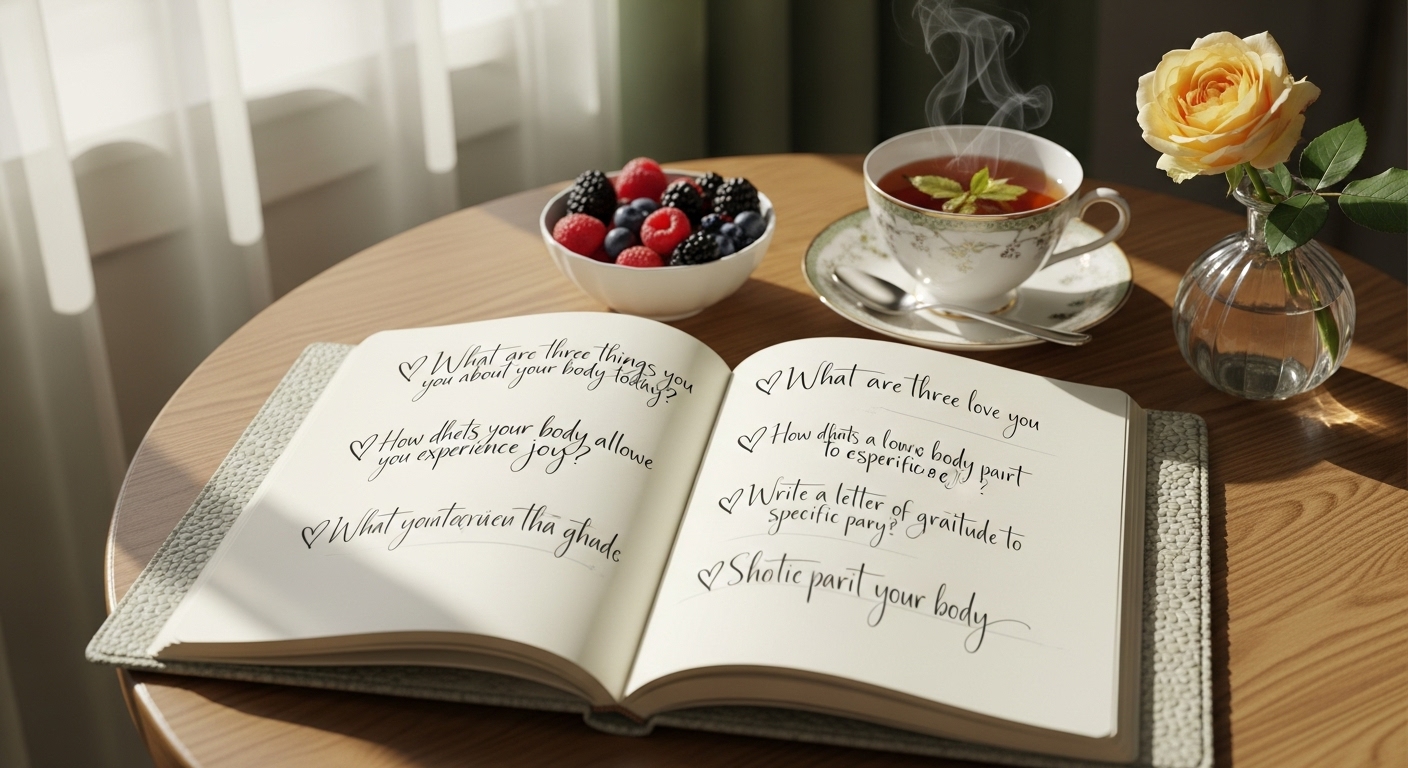 ♡ What are three things you
you about your body today?
♡ How dhets your body allowe
you experience joy?
♡ What the ghade
♡ What are three love you
♡ How dhints a lowre body pairt
to esperific
♡ Write a letter of graitude to
specific pary?
♡ Shotic parit your body